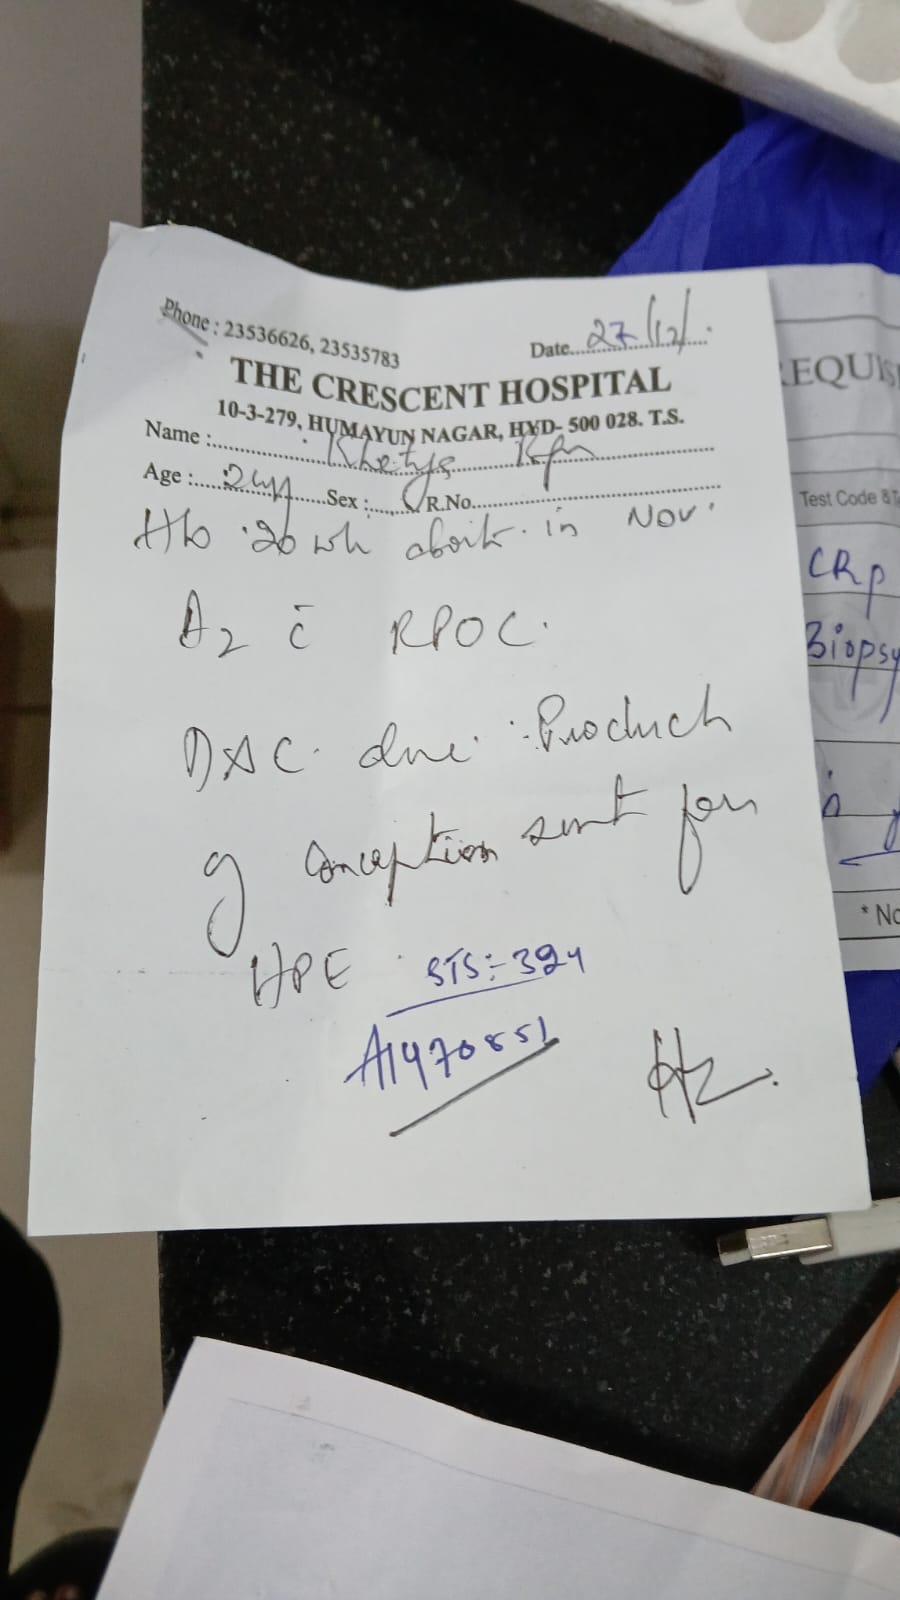 Phone : 23536626, 23535783
Date....27/12/.
THE CRESCENT HOSPITAL
10-3-279, HUMAYUN NAGAR, HYD- 500 028. T.S.
Name :
Age : Sex : R.No.
H/o 20 wk abort. in Nov.
A2 c̄ RPOC.
D&C. done. Products
of conception sent for
HPE
STS:- 394
A1470851
REQUIS
Test Code & T
CRP
Biopsy
* No